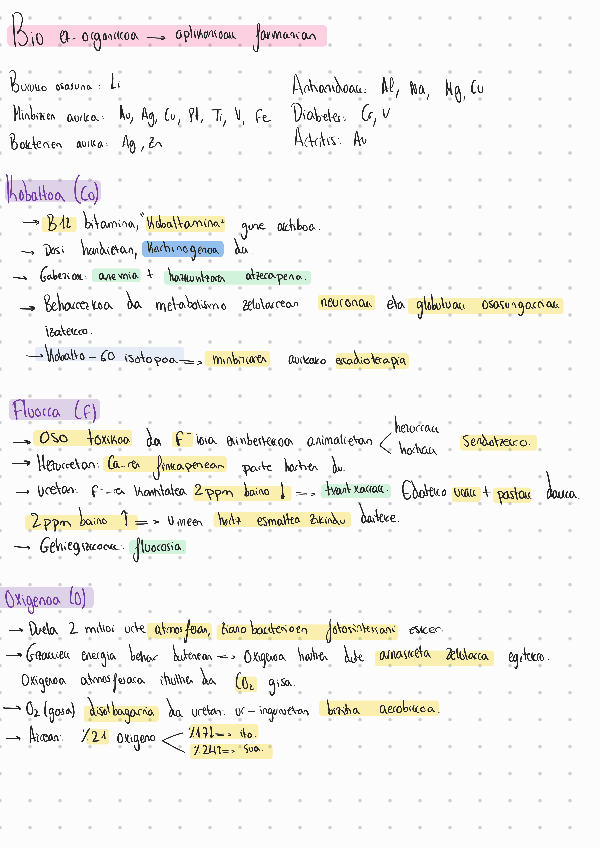 Bio ez-organikoa → aplikazioak farmazian
Buruko osasuna: Li
Antiazidoak: Al, Na, Mg, Ca
Minbiziaren aurka: Au, Ag, Cu, Pt, Ti, V, Fe
Diabetes: Cr, V
Bakterien aurka: Ag, Zn
Artritis: Au
Kobaltoa (Co)
→ B12 bitamina, "Kobaltamina" gune aktiboa.
→ Dosi handietan, kartzinogenoa da
→ Gabezian: anemia + hazkuntzaren atzerapena.
→ Beharrezkoa da metabolismo zelularrean neuronak eta globuluak osasungarriak
izateko.
→ Kobalto-60 isotopoa => minbiziaren aurkako erradioterapia
Fluorra (F)
→ Oso toxikoa da F⁻ ioia ezinbestekoa animalietan < hezurrak hortzak sendotzeko.
→ Hezurretan: Ca-ren finkapenean parte hartzen du.
→ Uretan: F⁻-ra kantitatea 2 ppm baino ↓ => txantxarrak. Edateko urak + pastak dauka.
2 ppm baino ↑ => Umeen hortz esmaltea zikindu daiteke.
→ Gehiegizkoak: fluorosia.
Oxigenoa (O)
→ Duela 2 milioi urte atmosferan, zianobakterioen fotosintesiari esker.
→ Gizakiek energia behar dutenean => Oxigenoa hartzen dute arnasketa zelularra egiteko.
Oxigenoa atmosferara itzultzen da CO₂ gisa.
→ O₂ (gasa) disolbagarria da uretan. Ur-inguruetan bizitza aerobikoa.
→ Airean: %21 oxigeno < %17 => ito.
%24 => sua.